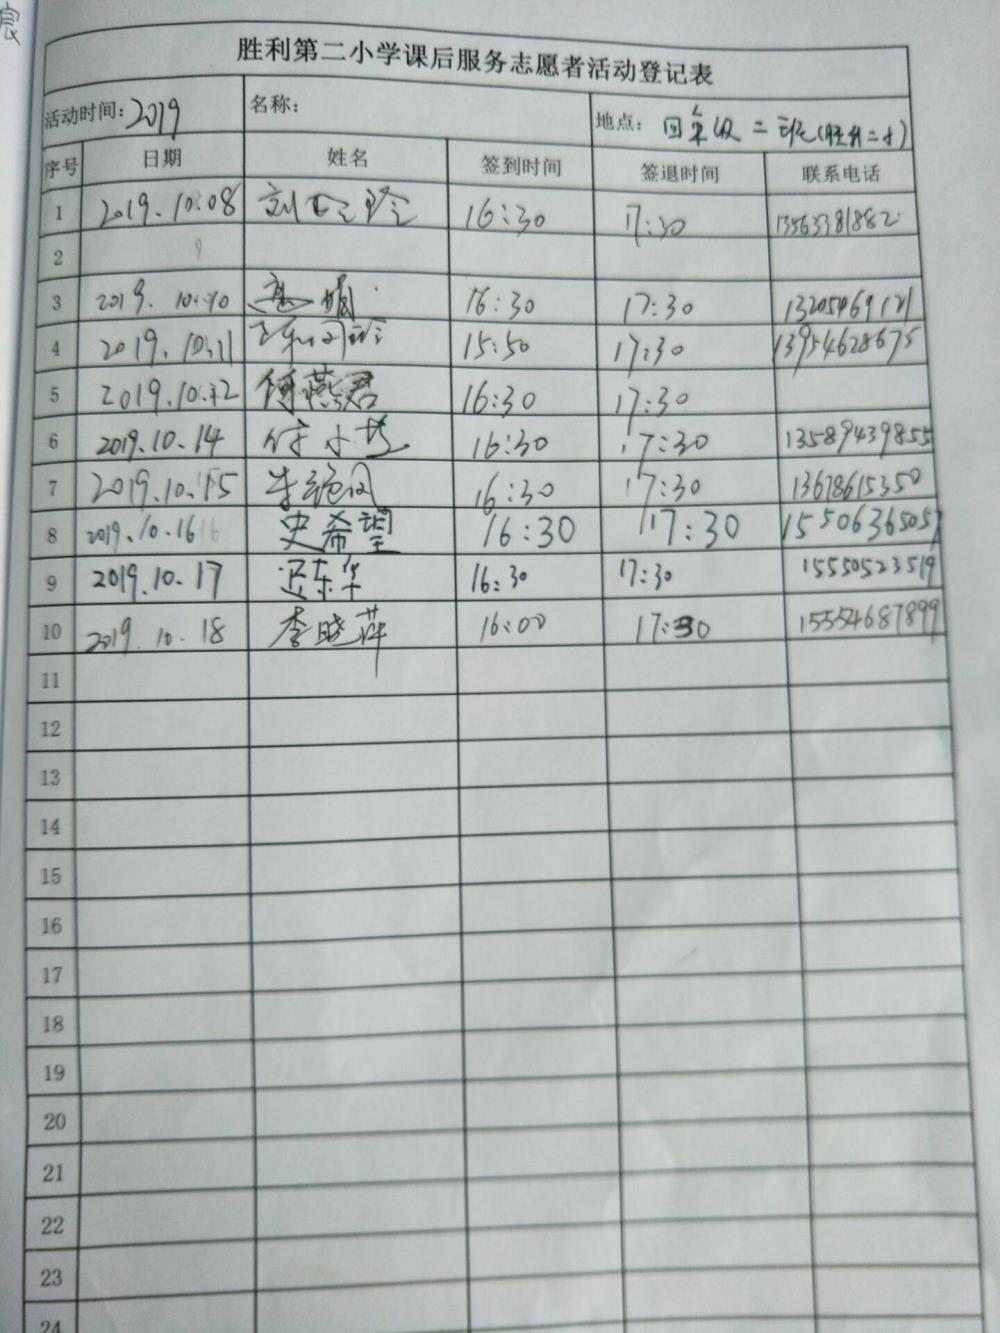 胜利第二小学课后服务志愿者活动登记表
活动时间：2019 名称： 地点：四年级二班(胜利二小)
序号 日期 姓名 签到时间 签退时间 联系电话
1 2019.10.08 刘 16:30 17:30 13563381882
2
3 2019.10.10 16:30 17:30 13205469121
4 2019.10.11 15:50 17:30 13954628675
5 2019.10.12 傅燕君 16:30 17:30
6 2019.10.14 付小芳 16:30 17:30 13589439855
7 2019.10.15 16:30 17:30 13678615350
8 2019.10.16 史希望 16:30 17:30 15506365057
9 2019.10.17 东华 16:30 17:30 15550523519
10 2019.10.18 李晓萍 16:00 17:30 15554687899
11
12
13
14
15
16
17
18
19
20
21
22
23
24